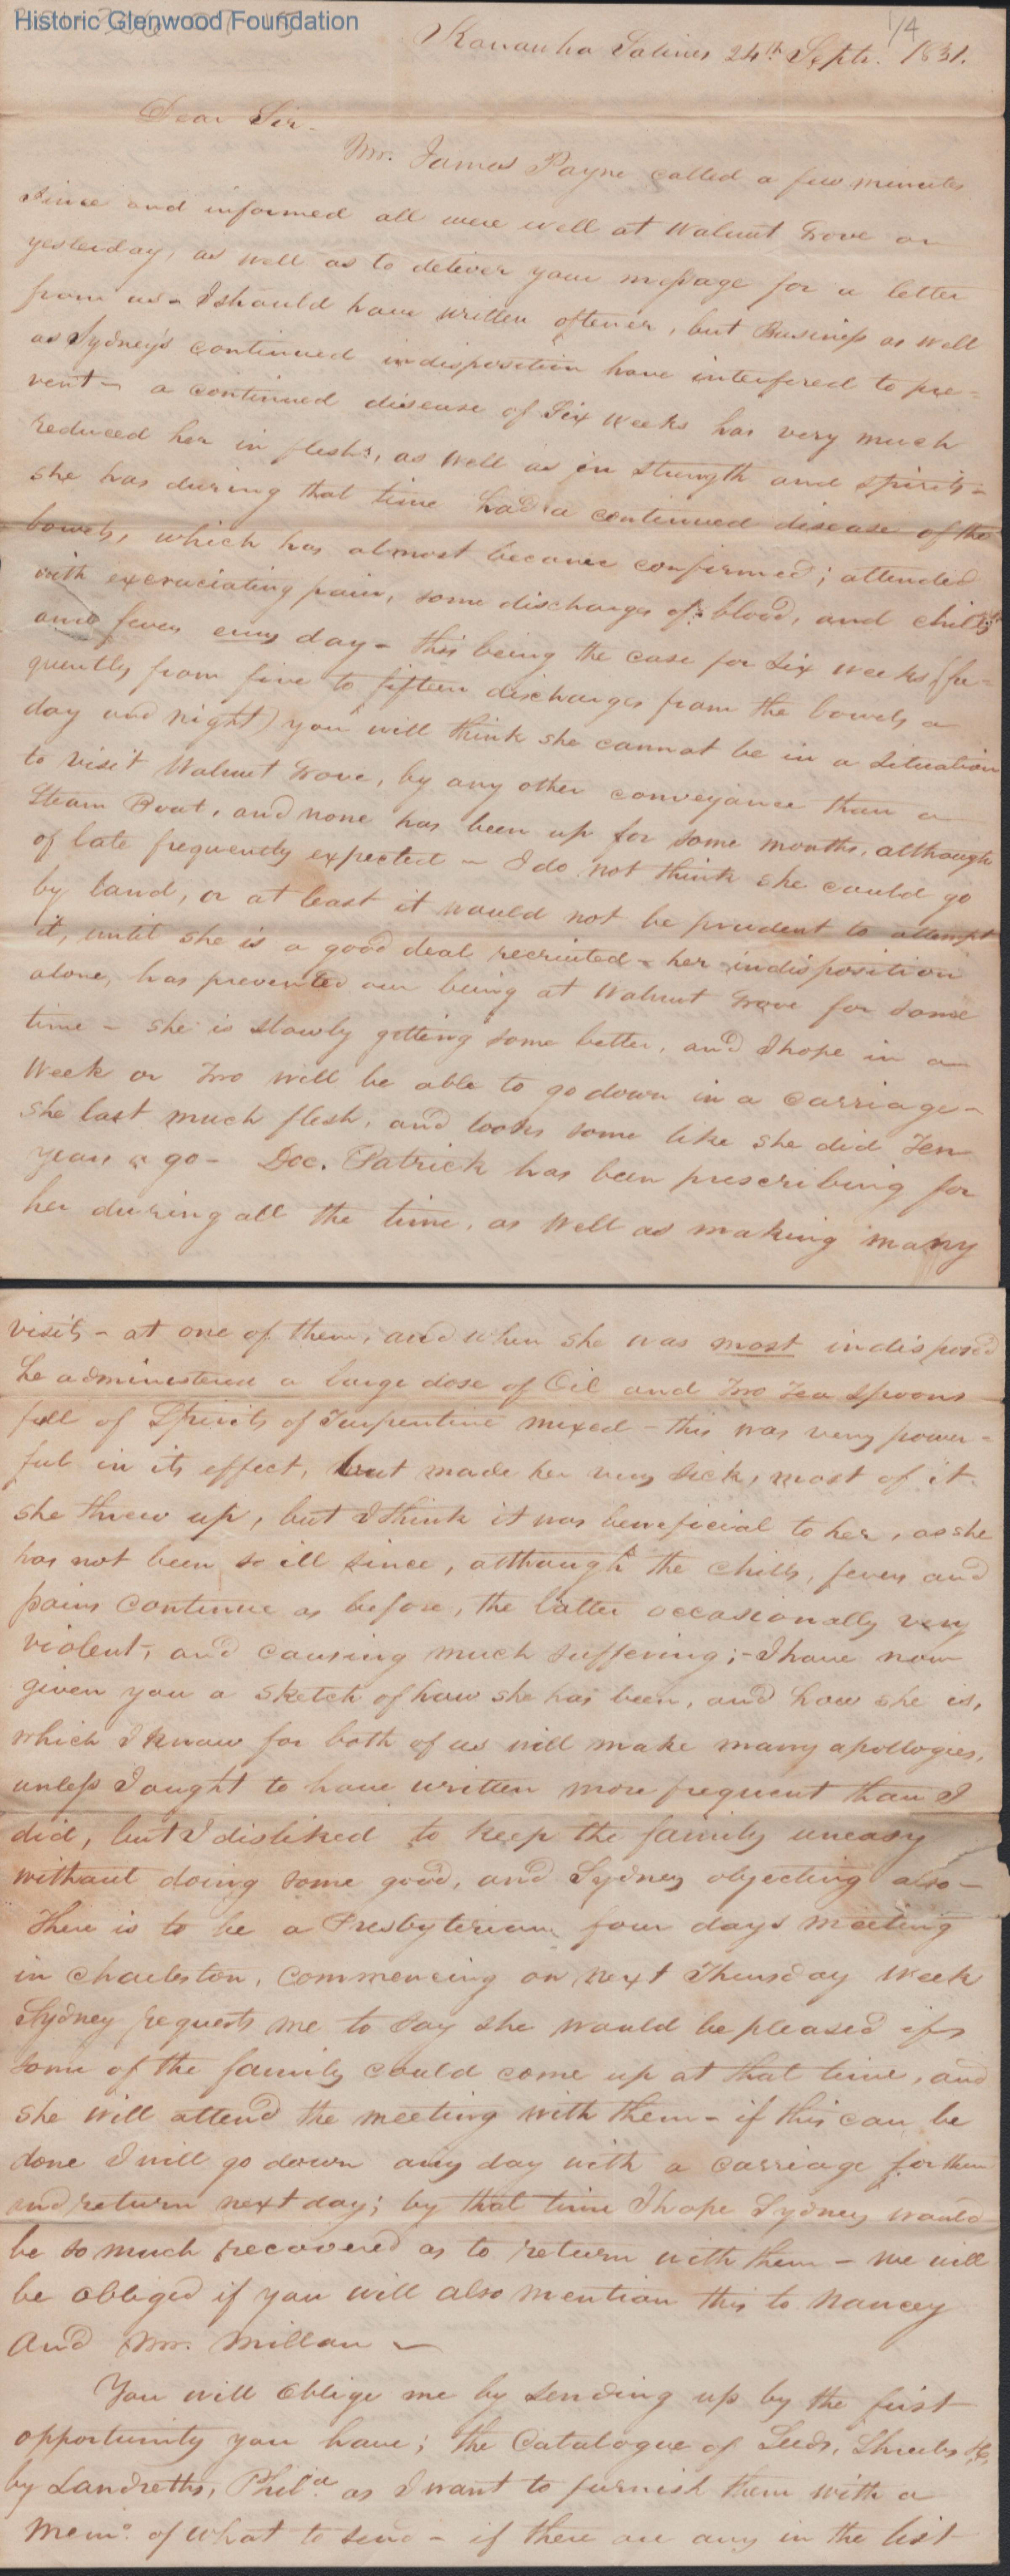 Historic Glenwood Foundation
1/4
Kanawha Salines 24th Septr. 1831.
Dear Sir -
Mr. James Payne called a few minutes
since and informed all were well at Walnut Grove on
yesterday, as well as to deliver your message for a letter
from us - I should have written oftener, but Business as well
as Sydney's continued indisposition have interfered to pre =
vent - a continued disease of Six weeks has very much
reduced her in flesh, as well as in strength and spirits -
she has during that time had a continued disease of the
bowels, which has almost became confirmed; attended
with excruciating pain, some discharges of blood, and chills
and fever every day - this being the case for Six weeks (fre =
quently from five to fifteen discharges from the bowels a
day and night) you will think she cannot be in a situation
to visit Walnut Grove, by any other conveyance than a
Steam Boat, and none has been up for some months, although
of late frequently expected - I do not think she could go
by land, or at least it would not be prudent to attempt
it, until she is a good deal recruited - her indisposition
alone, has prevented our being at Walnut Grove for some
time - she is slowly getting some better, and I hope in a
Week or Two will be able to go down in a carriage -
she lost much flesh, and looks some like she did Ten
years ago - Doc. Patrick has been prescribing for
her during all the time, as well as making many
visits - at one of them, and when she was most indisposed
he administered a large dose of Oil and Two Tea Spoons
full of Spirits of Turpentine mixed - this was very power =
ful in its effect, but made her very sick, most of it
she threw up, but I think it was beneficial to her, as she
has not been so ill since, although the chills, fever and
pains continue as before, the latter occasionally very
violent, and causing much suffering; - I have now
given you a sketch of how she has been, and how she is,
which I know for both of us will make many apollogies,
unless I ought to have written more frequent than I
did, but I disliked to keep the family uneasy
without doing some good, and Sydney objecting also -
There is to be a Presbyterian four days meeting
in Charleston, commencing on next Thursday week
Sydney requests me to say she would be pleased if
some of the family could come up at that time, and
she will attend the meeting with them - if this can be
done I will go down any day with a carriage for them
and return next day; by that time I hope Sydney would
be so much recovered as to return with them - we will
be obliged if you will also mention this to Nancy
and Mr. Millan -
You will oblige me by sending up by the first
opportunity you have; the Catalogue of Seeds, Shrubs &c,
by Landreths, Phila. as I want to furnish them with a
Memo. of what to send - if there are any in the list